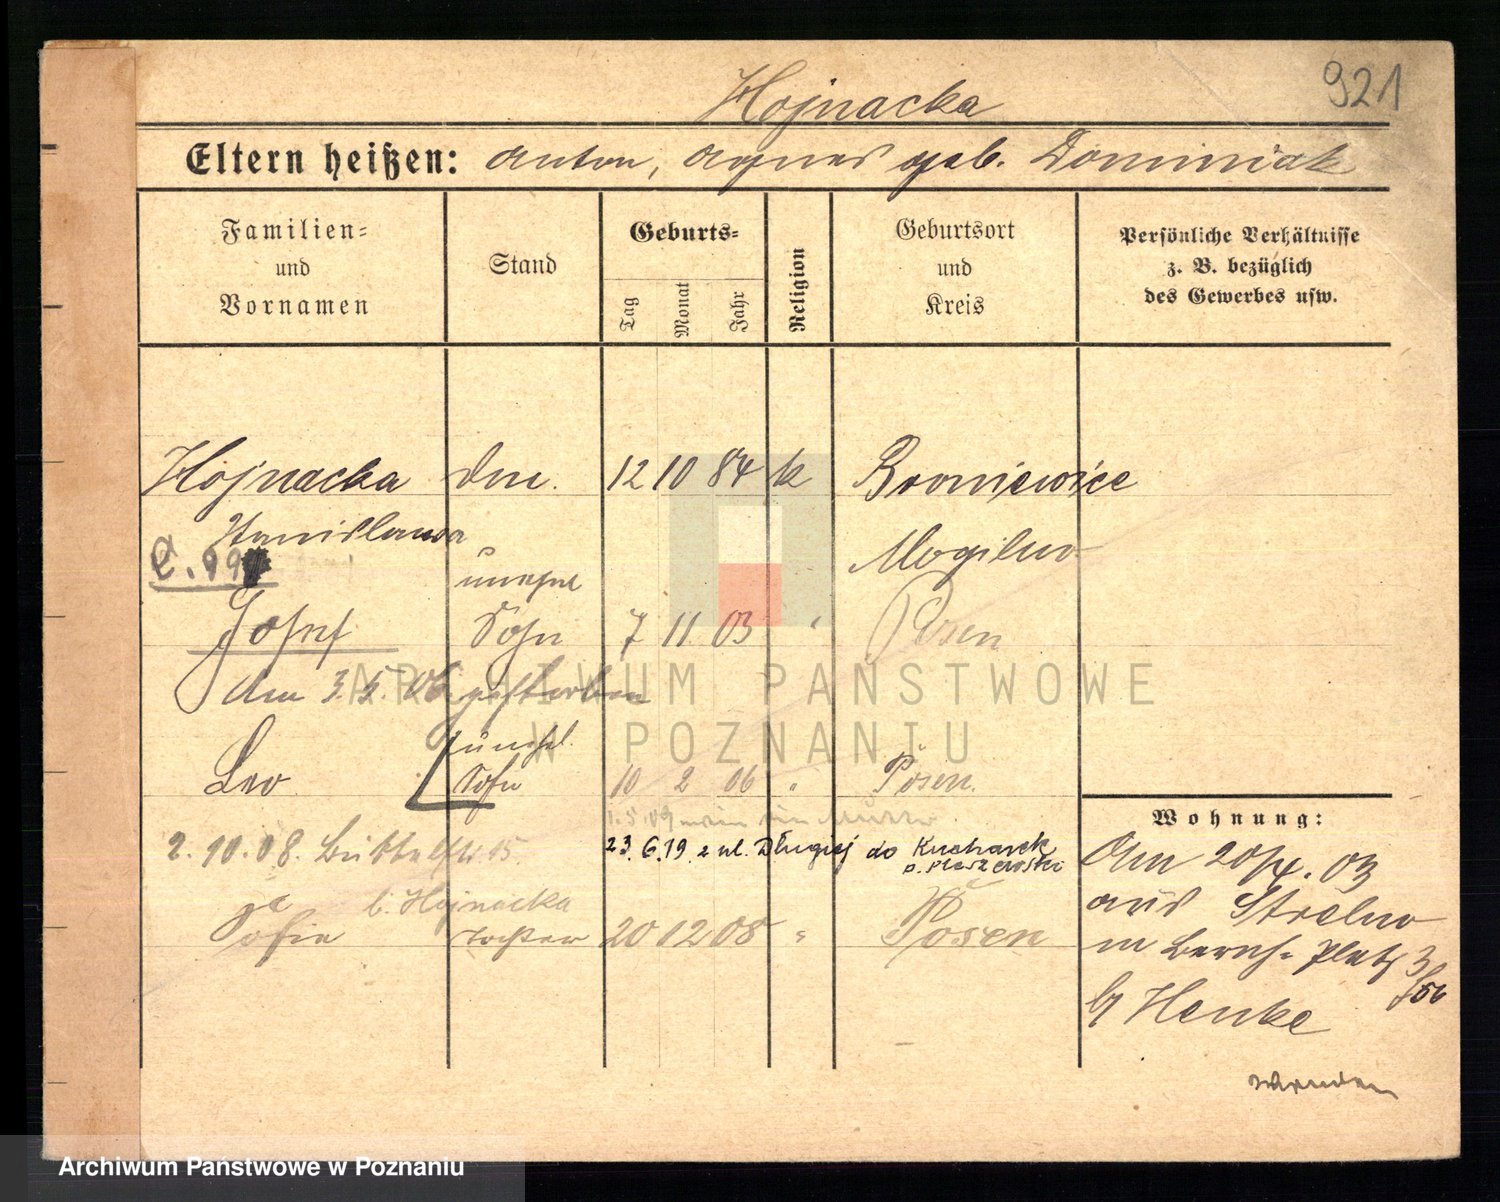 Hojnacka
921
Eltern heißen: Anton, Agnes geb. Dominiak
Familien=
und
Vornamen
Stand
Geburts=
Tag
Monat
Jahr
Religion
Geburtsort
und
Kreis
Persönliche Verhältnisse
z. B. bezüglich
des Gewerbes usw.
Hojnacka
12 10 84 k
Broniewice
Stanislawa
Mogilno
unehel
Josef Sohn 7 11 03 Posen
Am 3. 5. 06 gestorben
unehel.
Leo Sohn 10 2 06 " Posen.
1.5.09
2. 10. 08. 15
23. 6. 19. z ul. Długiej do
b. Hojnacka
Sofie Tochter 20 12 08 " Posen
Wohnung:
Am 20/4. 03
aus Strelno
Platz 3
Henke
wenden
ARCHIWUM PAŃSTWOWE
W POZNANIU
Archiwum Państwowe w Poznaniu